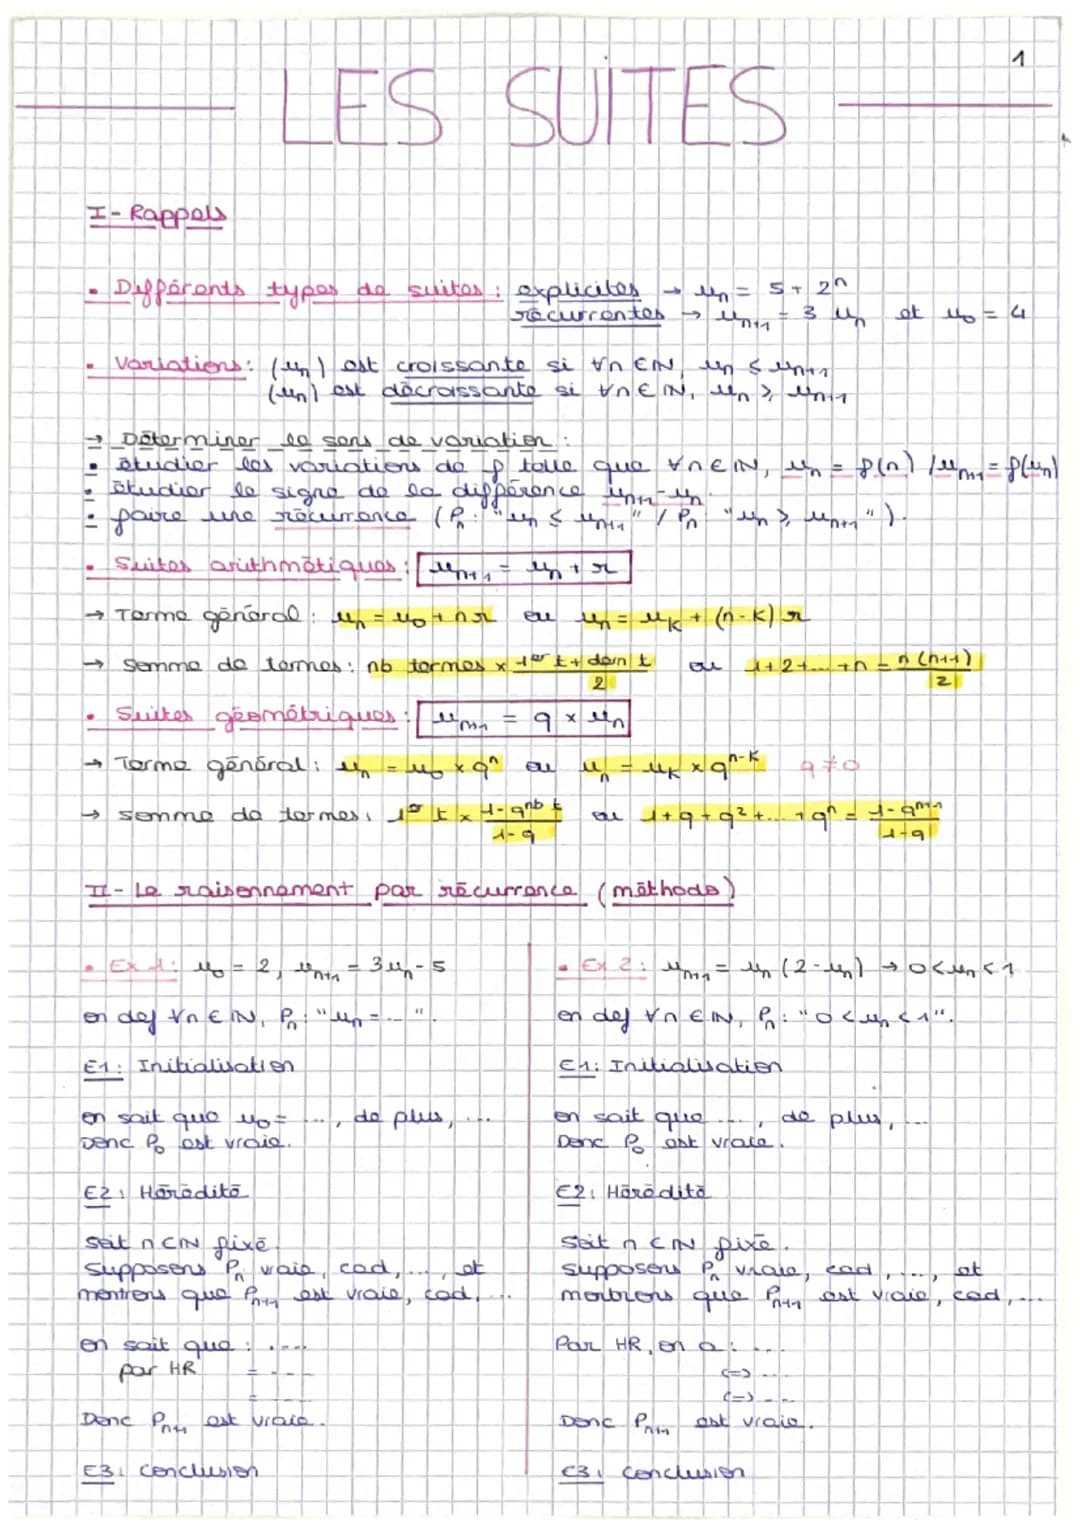 1
LES SUITES
I - Rappels
• Différents types de suites : explicites → uₙ = 5 + 2ⁿ
récurrentes → uₙ₊₁ = 3 uₙ et u₀ = 4
• Variations : (uₙ) est croissante si ∀n ∈ ℕ, uₙ ≤ uₙ₊₁
(uₙ) est décroissante si ∀n ∈ ℕ, uₙ ≥ uₙ₊₁
→ Déterminer le sens de variation :
• étudier les variations de f telle que ∀n ∈ ℕ, uₙ = f(n) / uₙ₊₁ = f(uₙ)
• étudier le signe de la différence uₙ₊₁ - uₙ.
• faire une récurrence (Pₙ : "uₙ ≤ uₙ₊₁" / Pₙ : "uₙ ≥ uₙ₊₁").
• Suites arithmétiques : uₙ₊₁ = uₙ + r
→ Terme général : uₙ = u₀ + nr ou uₙ = u_k + (n-k) r
→ Somme de termes : nb termes × (1er t + dern t)/2 ou 1+2+...+n = n(n+1)/2
• Suites géométriques : uₙ₊₁ = q × uₙ
→ Terme général : uₙ = u₀ × qⁿ ou uₙ = u_k × q^(n-k) q ≠ 0
→ somme de termes : 1er t × (1-q^(nb t))/(1-q) ou 1+q+q²+...+qⁿ = (1-q^(n+1))/(1-q)
II - Le raisonnement par récurrence (méthode)
• Ex 1 : u₀ = 2, uₙ₊₁ = 3uₙ - 5
on def ∀n ∈ ℕ, Pₙ : "uₙ = ... ".
E1 : Initialisation
on sait que u₀ = ..., de plus, ...
Donc P₀ est vraie.
E2 : Hérédité
Soit n ∈ ℕ fixé.
Supposons Pₙ vraie, cad, ..., et
montrons que Pₙ₊₁ est vraie, cad, ...
on sait que : ....
par HR = ...
= ...
Donc Pₙ₊₁ est vraie.
E3 : Conclusion
• Ex 2 : uₙ₊₁ = uₙ (2-uₙ) → 0 < uₙ < 1
on def ∀n ∈ ℕ, Pₙ : "0 < uₙ < 1".
E1 : Initialisation
on sait que ..., de plus, ...
Donc P₀ est vraie.
E2 : Hérédité
Soit n ∈ ℕ fixé.
Supposons Pₙ vraie, cad, ..., et
montrons que Pₙ₊₁ est vraie, cad, ...
Par HR, on a : ...
<=> ...
<=> ...
Donc Pₙ₊₁ est vraie.
E3 : Conclusion